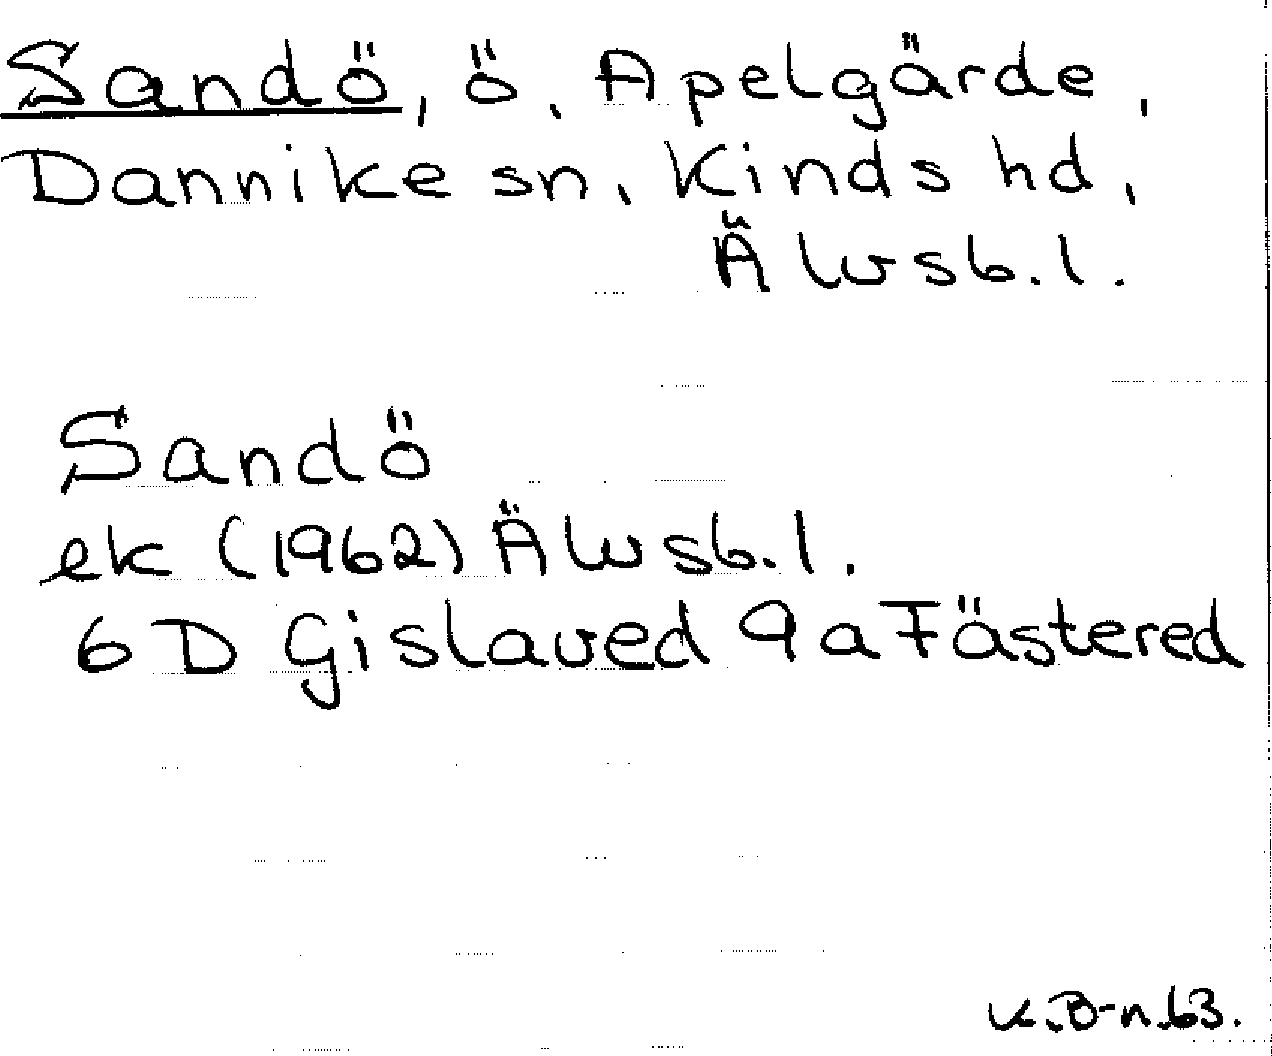 Sandö, ö, Apelgärde,
Dannike sn, Kinds hd,
Älvsb.l.
Sandö
ek (1962) Älvsb.l.
6D Gislaved 9a Fästered
K.B-n.63.